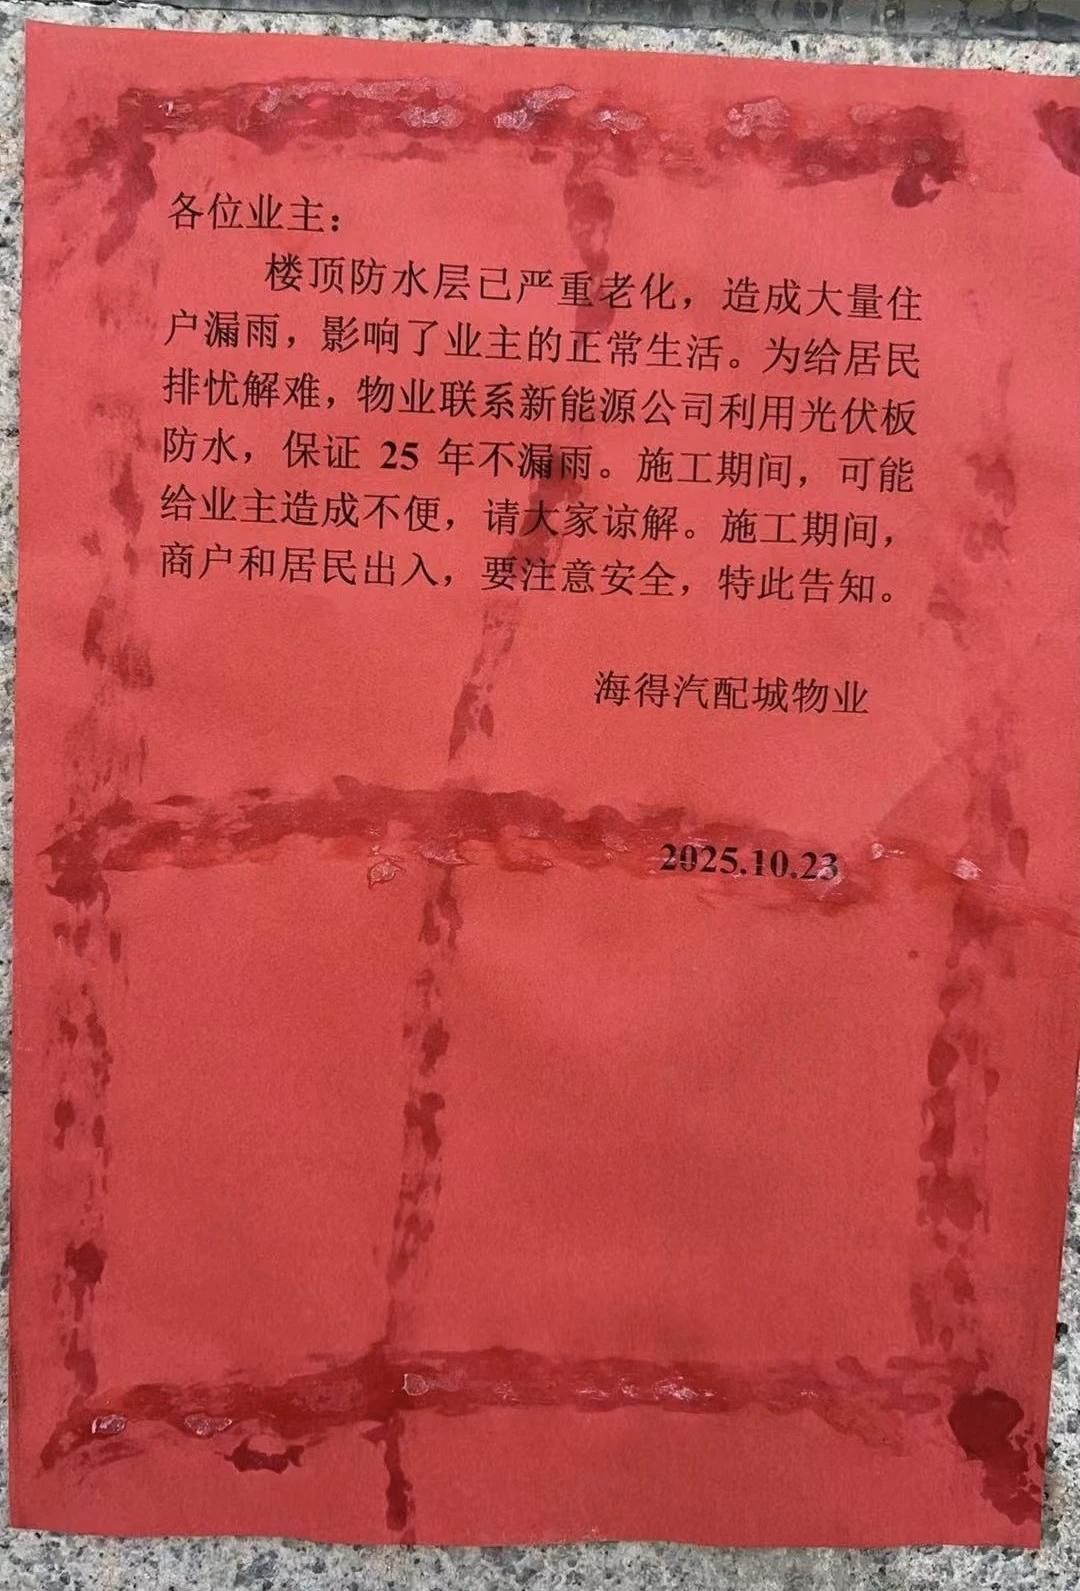 各位业主：
楼顶防水层已严重老化，造成大量住
户漏雨，影响了业主的正常生活。为给居民
排忧解难，物业联系新能源公司利用光伏板
防水，保证 25 年不漏雨。施工期间，可能
给业主造成不便，请大家谅解。施工期间，
商户和居民出入，要注意安全，特此告知。
海得汽配城物业
2025.10.23